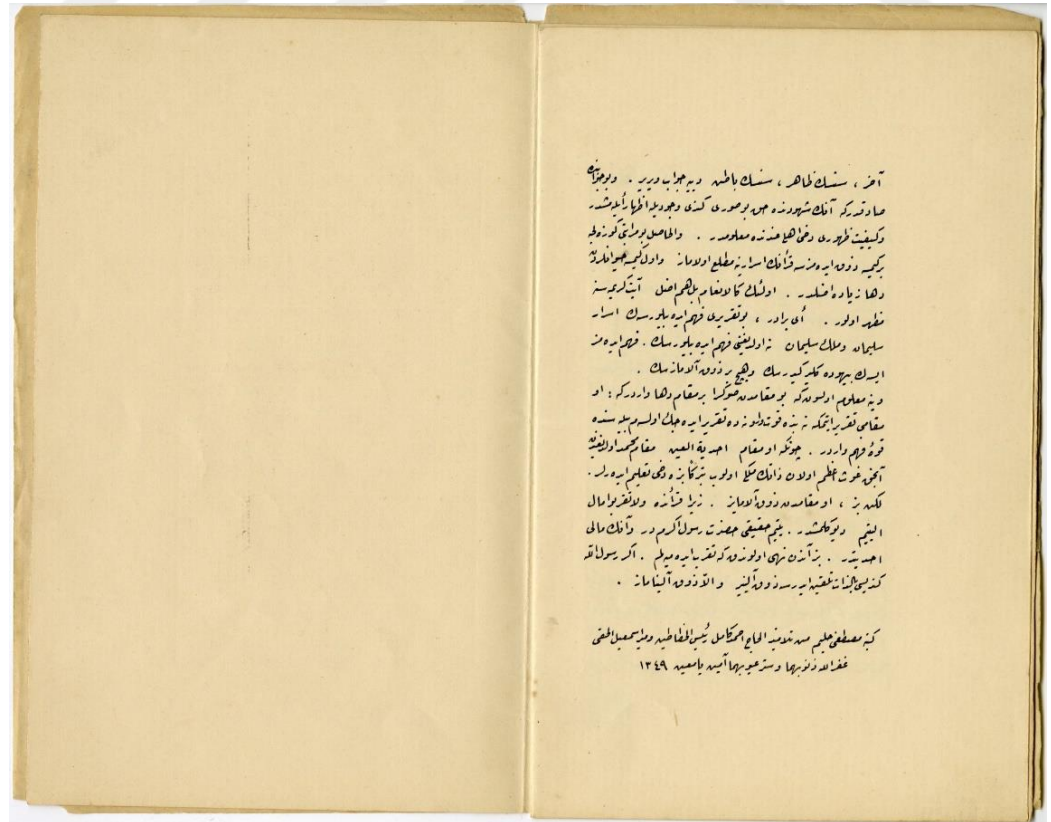 آخر ، سنسك ظاهر ، سنسك باطن دييه جواب ويرير . وبو جوابنده
صادقدركه آنك شهودنده حق بو صورى كندى وجوديله اظهار ايلمشدر
وكيفيت ظهورى دخى اهلى عندنده معلومدر . والحاصل بو مراتبى كوزلجه
بر كيمسه ذوق ايده مزسه قرآنك اسرارينه مطلع اولاماز واول كيمسه حيوانلردن
دها زياده اضلدر . اولئك كالانعام بل هم اضل آيت كريمه سنه
مظهر اولور . أى برادر ، بو تقريرى فهم ايده بيلورسهك اسرار
سليمان وملك سليمان نه اولديغنى فهم ايده بيلورسك . فهم ايده مز
ايسهك بيهوده كلير كيدرسك وهيچ بر ذوق آلامازسك .
وينه معلوم اولسون كه بو مقامدن صوكرا بر مقام دها واردركه : او
مقامى تقرير ايتمكه نه بزده قوت وار نه ده تقرير ايده جك اولسهم بيله سنده
قوهٔ فهم واردر . چونكه او مقام احدية العين مقام محمد اولديغندن
آنجق غوث اعظم اولان ذاتك ملكى اولوب تبركا بزه دخى تعليم ايدرلر .
لكن بز ، او مقامدن ذوق آلامايز . زيرا قرآنده ولا تقربوا مال
اليتيم ديو كلمشدر . يتيم حقيقى حضرت رسول اكرم در وآنك مالى
احديتدر . بز آندن نهى اولوندق كه تقرب ايده ميه لم . اكر رسول الله
كنديسى بالذات تلقين ايدرسه ذوق آلينير والا ذوق آليناماز .
كتبه مصطفى حليم من تلاميذ الحاج احمد كامل رئيس الخطاطين ومير اسمعيل الحقى
غفر الله ذنوبهما وستر عيوبهما آمين يا معين ١٣٤٩